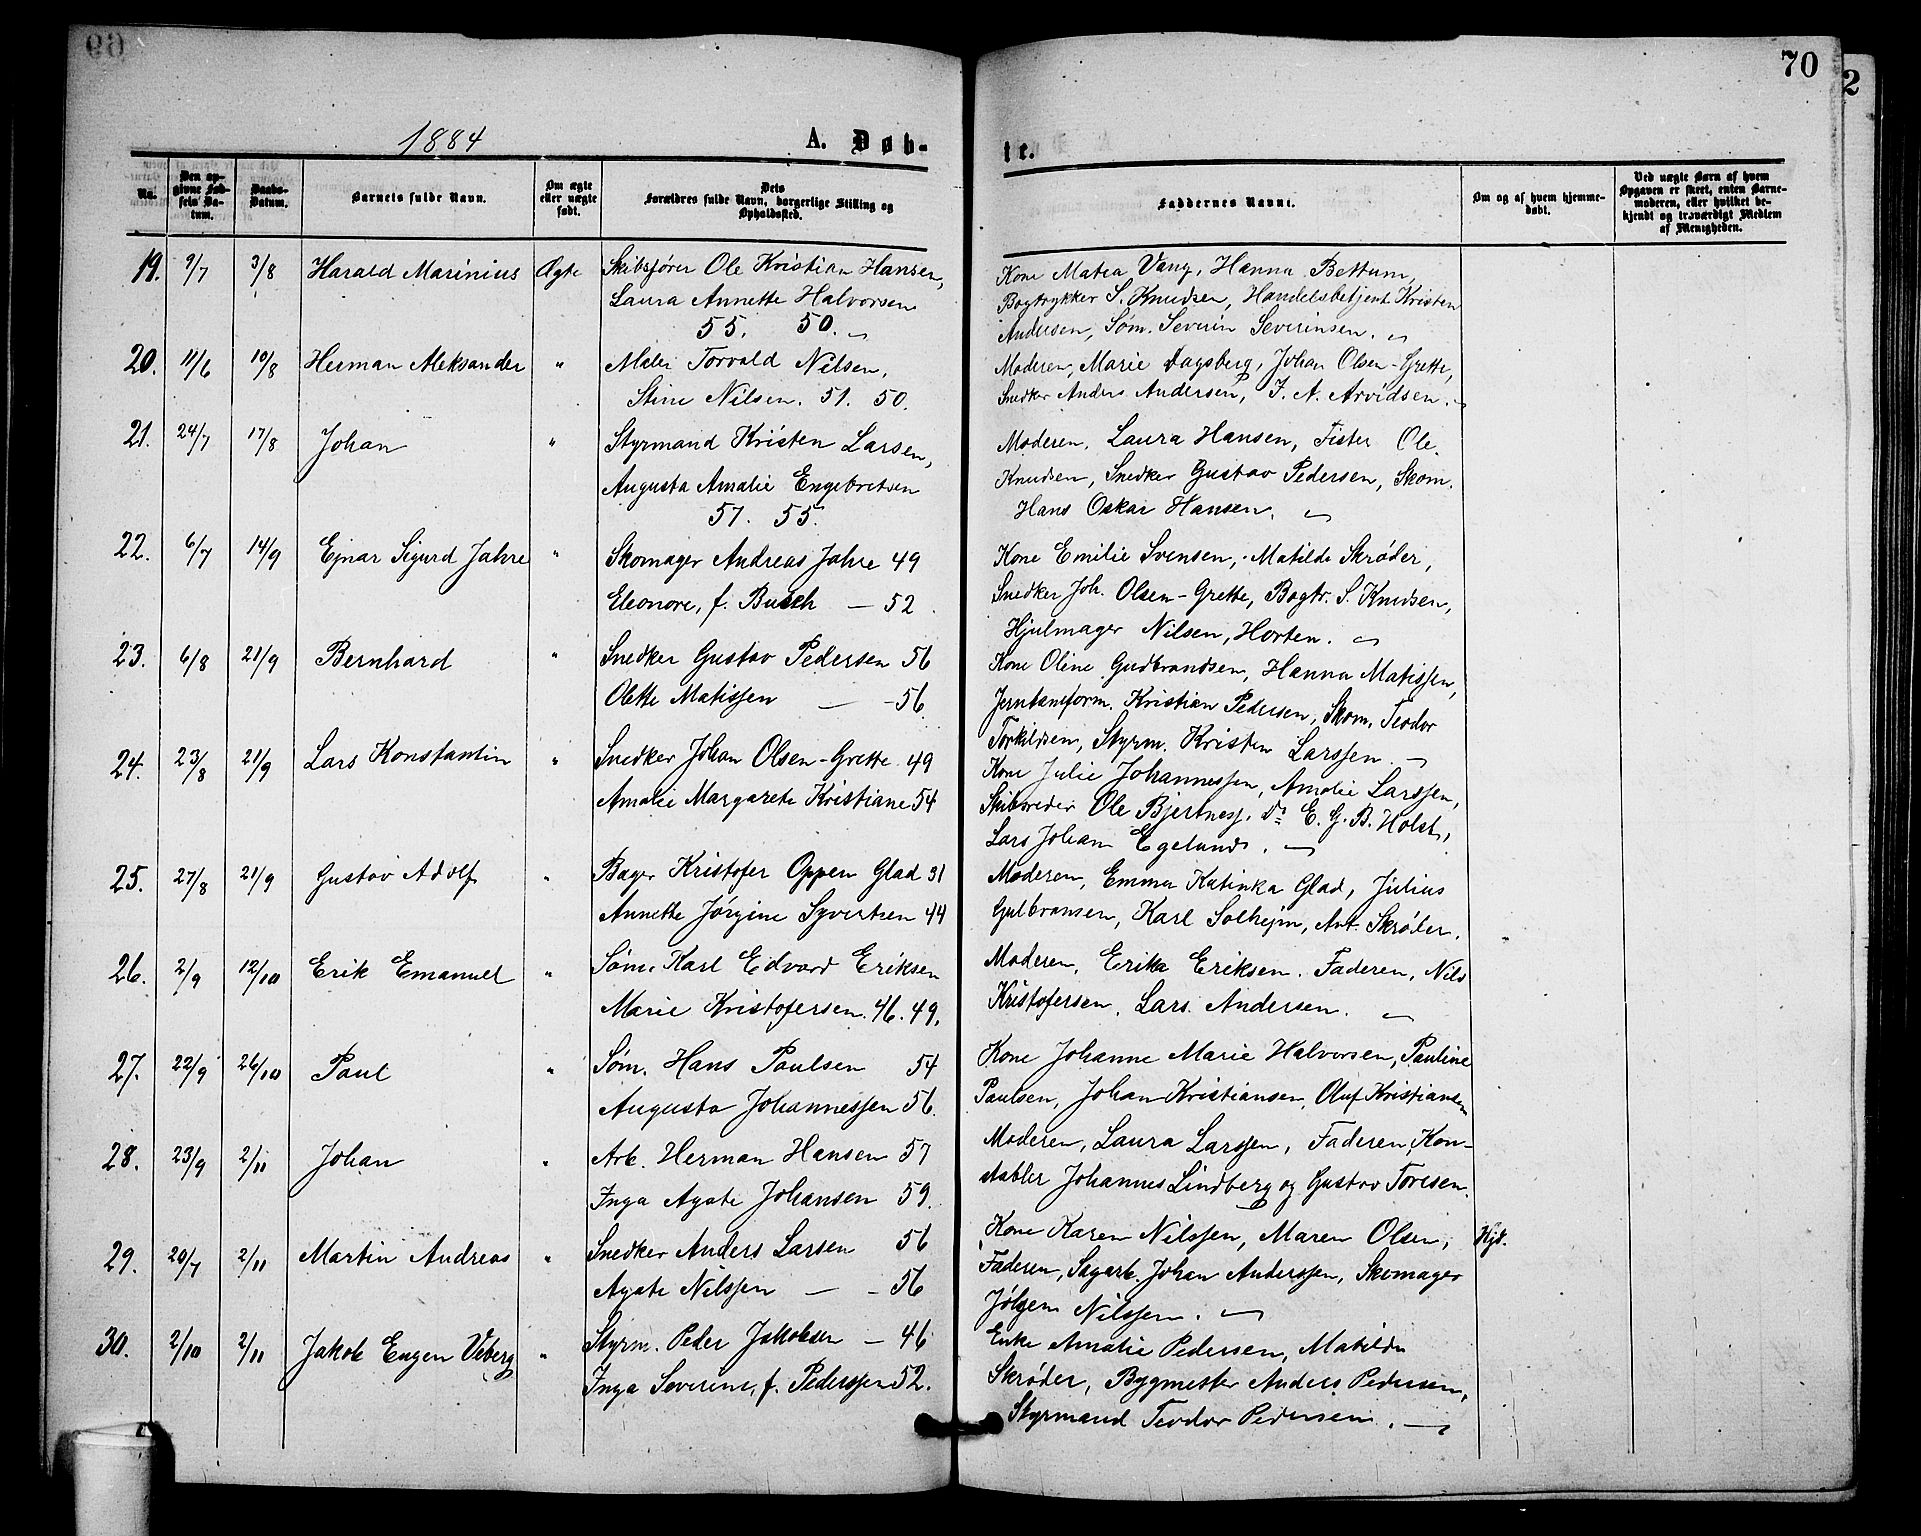 69
70
2
1884
A. Døb-
te.
No.
Den opgivne Fødsels Datum.
Daabs-Datum.
Barnets fulde Navn.
Om ægte eller uægte født.
Dets Forældres fulde Navn, borgerlige Stilling og Opholdssted.
Faddernes Navne.
Om og af hvem hjemmedøbt.
Ved uægte Børn af hvem Opgaven er skeet, enten Barnemoderen, eller hvilket bekjendt og troværdigt Medlem af Menigheden.
19. 9/7 3/8 Harald Marinius Ægte Skibsfører Ole Kristian Hansen,
Laura Annette Halvorsen
55. 50.
Kone Matea Vang, Hanna Bettum,
Bogtrykker S. Knudsen, Handelsbetjent Kristen
Andersen, Søm. Severin Severinsen.
20. 11/6 10/8 Herman Aleksander " Maler Torvald Nilsen,
Stine Nilsen. 51. 50.
Moderen, Marie Dagsberg, Johan Olsen-Grette,
Snedker Anders Andersen, J. A. Arvidsen.
21. 24/7 17/8 Johan " Styrmand Kristen Larsen,
Augusta Amalie Engebretsen
57. 55.
Moderen, Laura Hansen, Fister Ole
Knudsen, Snedker Gustav Pedersen, Skom.
Hans Oskar Hansen.
22. 6/7 14/9 Ejnar Sigurd Jahre " Skomager Andreas Jahre 49
Eleonore, f. Busch — 52.
Kone Emilie Svensen, Matilde Skrøder,
Snedker Joh. Olsen-Grette, Bogtr. S. Knudsen,
Hjulmager Nilsen, Horten.
23. 6/8 21/9 Bernhard " Snedker Gustav Pedersen 56
Olette Matissen — - 56.
Kone Oline Gudbrandsen, Hanna Matissen,
Jerntøm. Kristian Pedersen, Skom. Teodor
Torkildsen, Styrm. Kristen Larssen.
24. 23/8 21/9 Lars Konstantin " Snedker Johan Olsen-Grette 49
Amalie Margarete Kristiane 54
Kone Julie Johannessen, Amalie Larssen,
Skibsreder Ole Bjertnes, Do E. G. B. Holst,
Lars Johan Egelund.
25. 27/8 21/9 Gustav Adolf " Bager Kristofer Oppen Glad 31
Annette Jørgine Syvertsen 44
Moderen, Emma Katinka Glad, Julius
Gulbransen, Karl Solhejm, Ant. Skrøder.
26. 2/9 12/10 Erik Emanuel " Søm. Karl Edvard Eriksen
Marie Kristofersen. 46. 49.
Moderen, Erika Eriksen. Faderen, Nils
Kristofersen, Lars Andersen.
27. 22/9 26/10 Paul " Søm. Hans Paulsen 54
Augusta Johannessen 56.
Kone Johanne Marie Halvorsen, Pauline
Paulsen, Johan Kristiansen, Oluf Kristiansen
28. 23/9 2/11 Johan " Arb. Herman Hansen 57
Inga Agate Johansen 59.
Moderen, Laura Larssen, Faderen, Kon-
stabler Johannes Lindberg og Gustav Toresen.
29. 20/7 2/11 Martin Andreas " Snedker Anders Larsen 56
Agate Nilssen — - 56
Kone Karen Nilssen, Maren Olsen, Hjd.
Faderen, Sagarb. Johan Anderssen, Skomager
Jølgen Nilssen.
30. 2/10 2/11 Jakob Eugen Viberg " Styrm. Peder Jakobsen — 46
Inga Severine, f. Pederssen 52.
Enke Amalie Pedersen, Matilde
Skrøder, Bygmester Anders Pedersen,
Styrmand Teodor Pedersen.